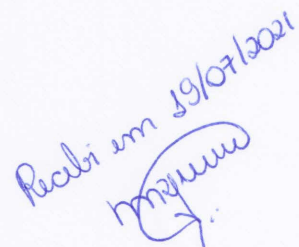 Recebi em 19/07/2021